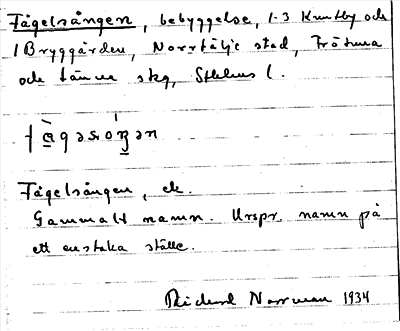 Fågelsången, bebyggelse, 1-3 Knutby och
1 Bryggården, Norrtälje stad, Frötuna
och Länna skg, Sthlms l.
Fågelsången, ek.
Gammalt namn. Urspr. namn på
ett enstaka ställe.
Rickard Norrman 1934